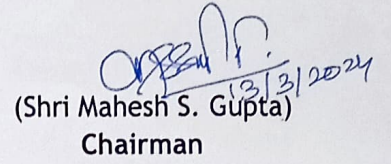 13/3/2024
(Shri Mahesh S. Gupta)
Chairman